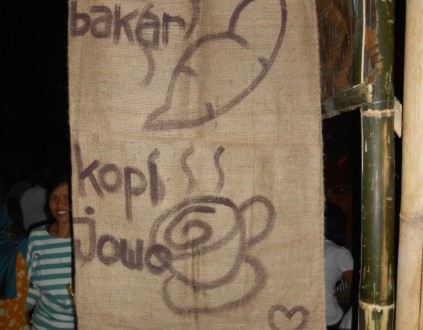 bakar
kopi
jowo